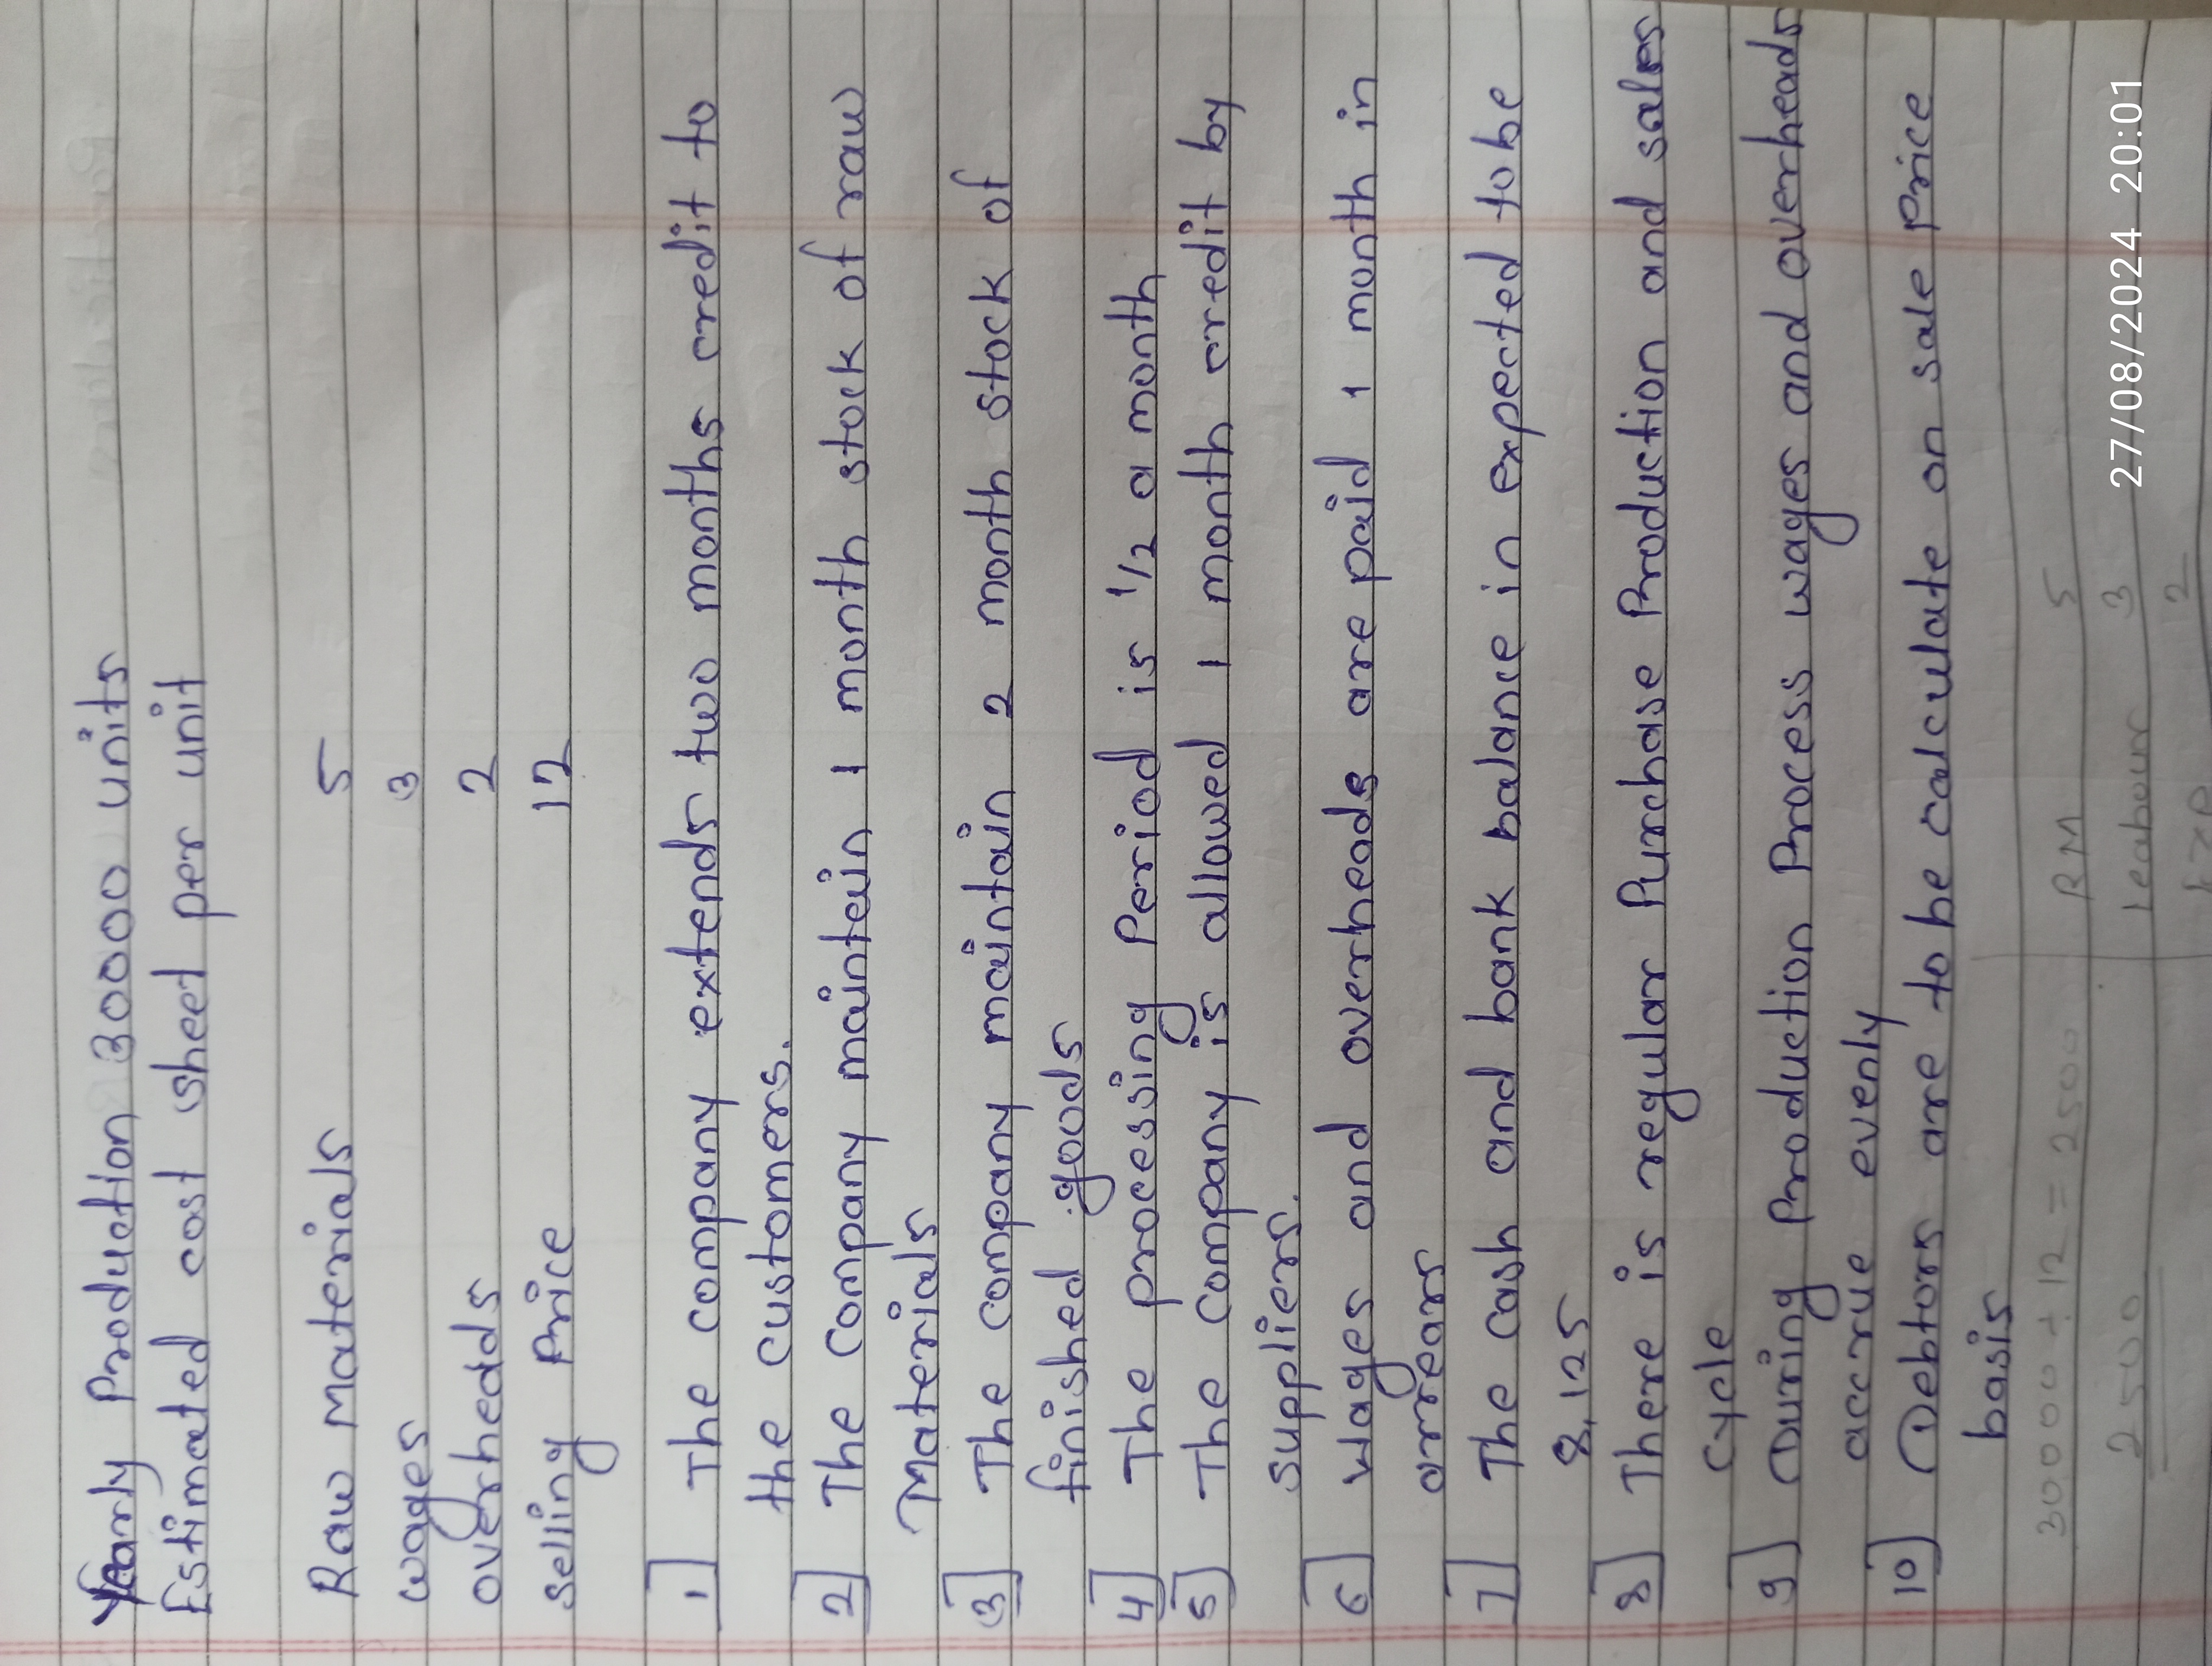 Yearly Production 30000 units
Estimated cost sheet per unit
Raw Materials 5
wages 3
overheads 2
selling Price 12
1] The company extends two months credit to
the customers.
2] The company maintain 1 month stock of raw
Materials
3] The company maintain 2 month stock of
finished goods
4] The processing Period is 1/2 a month
5] The company is allowed 1 month credit by
suppliers.
6] Wages and overheads are paid 1 month in
arrears
7] The cash and bank balance in expected to be
8,125
8] There is regular Purchase Production and sales
cycle
9] During Production Process wages and overheads
accrue evenly
10] Debtors are to be calculate on sale price
basis
30000 ÷ 12 = 2500
2500
RM 5
Leabour 3
Exp 2
27/08/2024 20:01